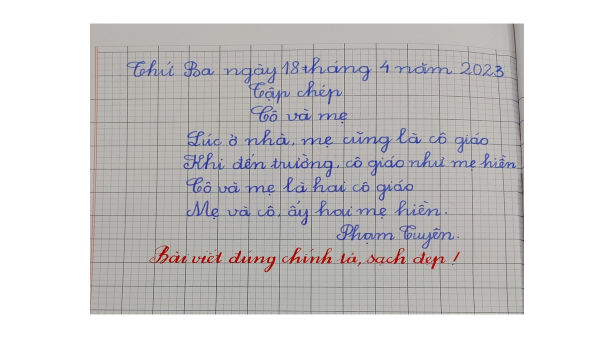 Thứ Ba ngày 18 tháng 4 năm 2023
Tập chép
Cô và mẹ
Lúc ở nhà, mẹ cũng là cô giáo
Khi đến trường, cô giáo như mẹ hiền
Cô và mẹ là hai cô giáo
Mẹ và cô, ấy hai mẹ hiền.
Phạm Tuyên.
Bài viết đúng chính tả, sạch đẹp !